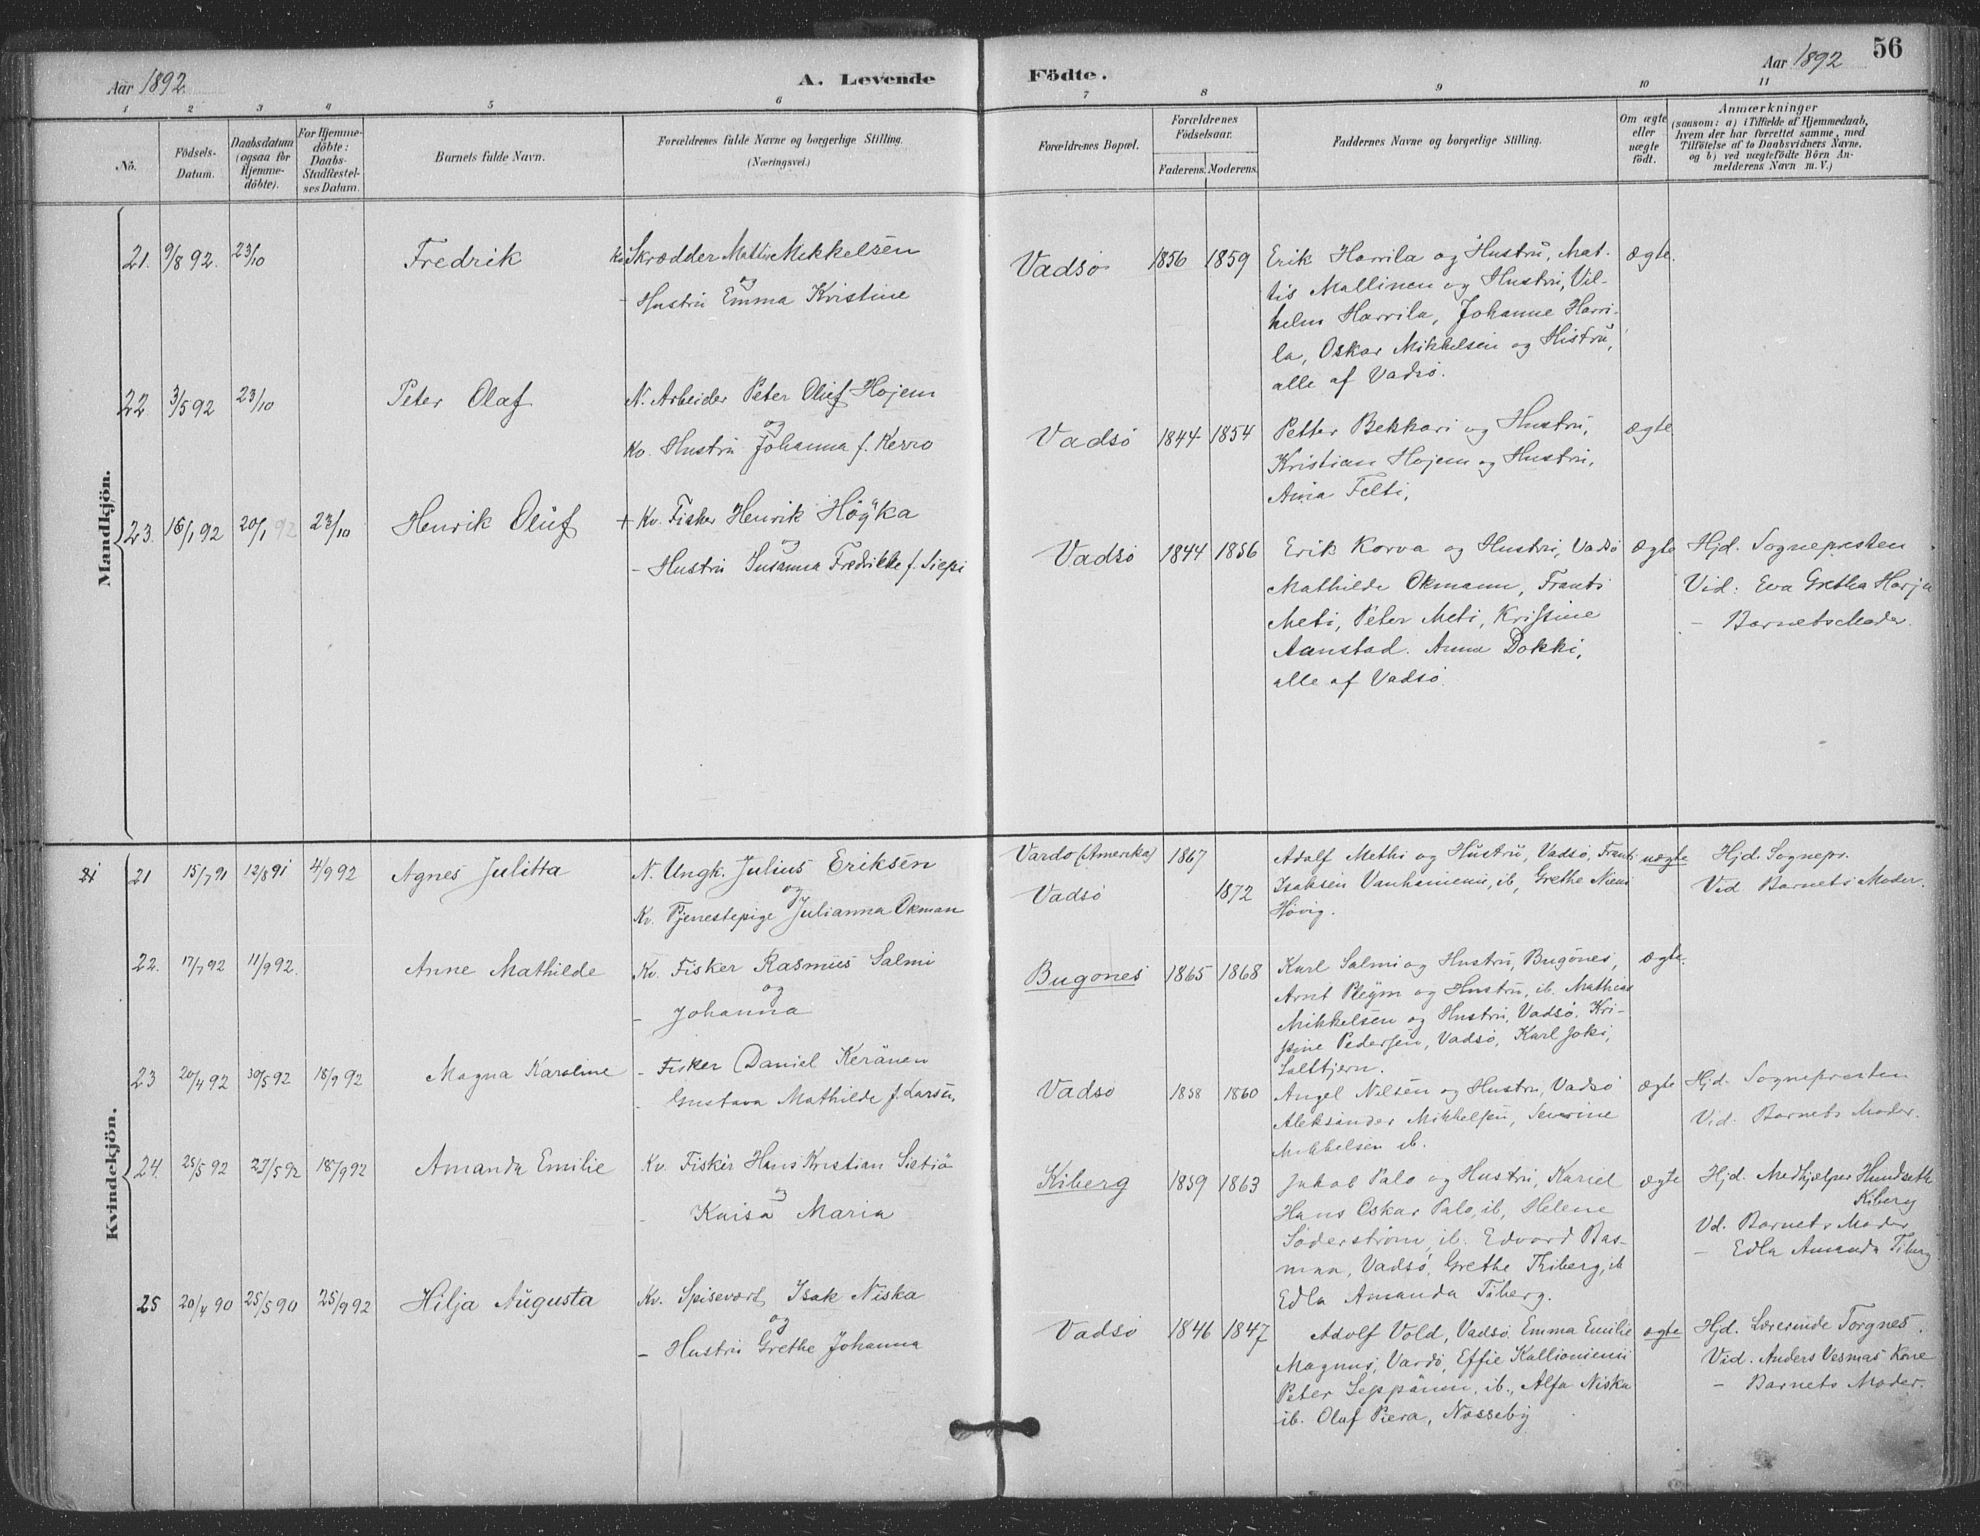 Aar 1892
A. Levende
Födte.
Aar 1892
56
1 2 3 4 5 6 7 8 9 10 11
No.
Födsels-
Datum.
Daabsdatum
(ogsaa for
Hjemme-
döbte).
For Hjemme-
döbte:
Daabs-
Stadfæstel-
ses Datum.
Barnets fulde Navn.
Forældrenes fulde Navne og borgerlige Stilling
(Næringsvei.)
Forældrenes Bopæl.
Forældrenes
Födselsaar.
Faderens. Moderens.
Faddernes Navne og borgerlige Stilling.
Om ægte
eller
uægte
födt.
Anmærkninger
(saasom: a) i Tilfælde af Hjemmedaab,
hvem der har forrettet samme, med
Tilföielse af to Daabsvidners Navne,
og b) ved uægtefödte Börn An-
melderens Navn m. V.)
Mandkjön.
21. 9/8 92. 23/10
Fredrik
Kv Skrædder Mikkelsen
og
- Hustru Emma Kristine
Vadsö 1856 1859
Erik Harrila og Hustru, Mat-
tis Mallinen og Hustru, Vil-
helm Harrila, Johanne Harri-
la, Oskar Mikkelsen og Hustru,
alle af Vadsö.
ægte.
22 3/5 92 23/10
Peter Olaf
N. Arbeider Peter Oluf Hojem
og
Kv. Hustru Johanna f. Kerro
Vadsö 1844 1854
Petter Bekkari og Hustru,
Kristian Hojem og Hustru,
Felti,
ægte
23. 16/1 92 20/1 92 23/10
Henrik Oluf
+ Kv. Fisker Henrik
og
- Hustru Susanna Fredrikke f. Siepi
Vadsö 1844 1856
Erik Korva og Hustru, Vadsö
Mathilde Okmann, Frants
Meti, Peter Meti, Kristine
Aanstad. Anna Dokki,
alle af Vadsö.
ægte
Hjd. Sognepresten
Vid: Eva Gretha
- Barnets Moder.
Kvindekjön.
21 21 15/7 91 12/8 91 4/9 92
Agnes Julitta
N. Ungk. Julius Eriksen
og
Kv. Tjenestepige Julianna Okman
Vardo (Amerika) 1867
Vadsö 1872
Adolf Methi og Hustru, Vadsö, Frants
Isaksen ib, Grethe
Hövig.
uægte
Hjd. Sognepr.
Vid Barnets Moder.
22. 17/7 92 11/9 92.
Anne Mathilde
Kv. Fisker Rasmus Salmi
og
- Johanna
Bugönes 1865 1868
Karl Salmi og Hustru, Bugönes,
Arnt Pleym og Hustru, ib. Mathias
Mikkelsen og Hustru, Vadsö. Kri-
stine Pedersen, Vadsö, Karl Joki,
Saltbjern.
ægte.
23 20/4 92 30/5 92 18/9 92
Magna Karoline
- Fisker Daniel Keränen
- Gustava Mathilde f. Larsen
Vadsö 1858 1860
Angel Nilsen og Hustru, Vadsö
Aleksander Mikkelsen, Severine
Mikkelsen ib.
ægte
Hjd. Sognepresten
Vid. Barnets Moder.
24. 25/5 92 27/5 92 18/9 92
Amanda Emilie
Kv. Fisker Hans Kristian
og
- Kaisa Maria
Kiberg 1859 1863
Jakob Palo og Hustru,
Hans Oskar Palo, ib, Helene
Söderström, ib. Edvard Bas-
man, Vadsö, Grethe Kiberg, ib
Edla Amanda Tiberg.
ægte
Hjd. Medhjælper Hundseth
Kiberg
Vd. Barnets Moder
- Edla Amanda Tiberg
25 20/4 90 25/5 90 25/9 92
Hilja Augusta
Kv. Spisevært Isak Niska
og
- Hustru Grethe Johanna
Vadsö 1846 1847
Adolf Vold, Vadsö. Emma Emilie
Magnus, Vardö, Effie Kallioniemi
Peter Seppänen, ib., Alfa Niska
ib. Olaf Piera, Nesseby
ægte
Hjd. Lærerinde Torgnes.
Vid. Anders Vesmas Kone
- Barnets Moder.